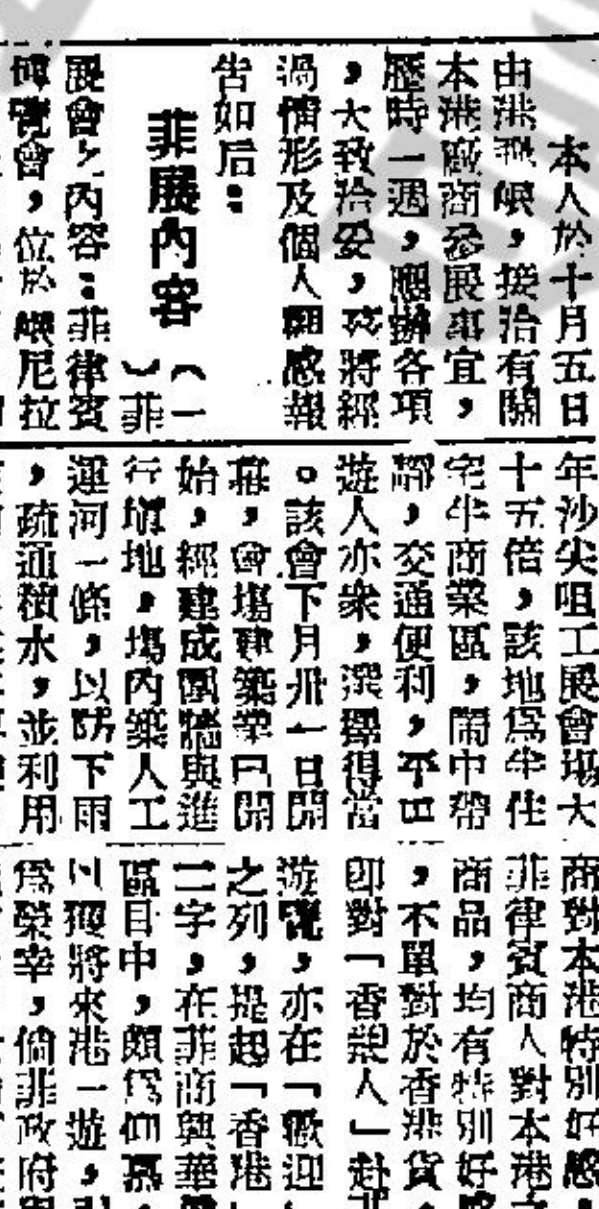 本人於十月五日
由港飛岷，接洽有關
本港廠商參展事宜，
歷時一週，應辦各項
，大致洽妥，茲將經
過情形及個人觀感報
告如后：
菲展內容
（一
）菲
展會之內容：菲律賓
博覽會，位於岷尼拉
年沙尖咀工展會場大
十五倍，該地爲半住
宅半商業區，鬧中帶
靜，交通便利，平日
遊人亦衆，選擇得當
。該會下月卅一日開
幕，會塲建築業已開
始，經建成圍牆與進
行塡地，塲內築人工
運河一條，以防下雨
，疏通積水，並利用
商對本港特別好感，
菲律賓商人對本港之
商品，均有特別好感
，不單對於香港貨，
即對「香港人」赴菲
游覽，亦在「歡迎」
之列，提起「香港」
二字，在菲商與華僑
區目中，頗爲仰慕，
以獲將來港一遊，引
爲榮幸，倘菲政府